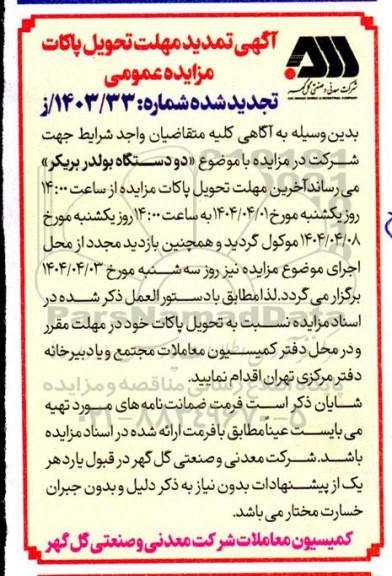 آگهی تمدید مهلت تحویل پاکات
مزایده عمومی
تجدید شده شماره: ۱۴۰۳/۳۳/ز
شرکت معدنی و صنعتی گل گهر
بدین وسیله به آگاهی کلیه متقاضیان واجد شرایط جهت
شرکت در مزایده با موضوع «دو دستگاه بولدر بریکر»
می رساند آخرین مهلت تحویل پاکات مزایده از ساعت ۱۴:۰۰
روز یکشنبه مورخ ۱۴۰۴/۰۴/۰۱ به ساعت ۱۴:۰۰ روز یکشنبه مورخ
۱۴۰۴/۰۴/۰۸ موکول گردید و همچنین بازدید مجدد از محل
اجرای موضوع مزایده نیز روز سه شنبه مورخ ۱۴۰۴/۰۴/۰۳
برگزار می گردد. لذا مطابق با دستور العمل ذکر شده در
اسناد مزایده نسبت به تحویل پاکات خود در مهلت مقرر
و در محل دفتر کمیسیون معاملات مجتمع و یا دبیرخانه
دفتر مرکزی تهران اقدام نمایید.
شایان ذکر است فرمت ضمانت نامه های مورد تهیه
می بایست عیناً مطابق با فرمت ارائه شده در اسناد مزایده
باشد. شرکت معدنی و صنعتی گل گهر در قبول یا رد هر
یک از پیشنهادات بدون نیاز به ذکر دلیل و بدون جبران
خسارت مختار می باشد.
کمیسیون معاملات شرکت معدنی و صنعتی گل گهر
ParsNamadData